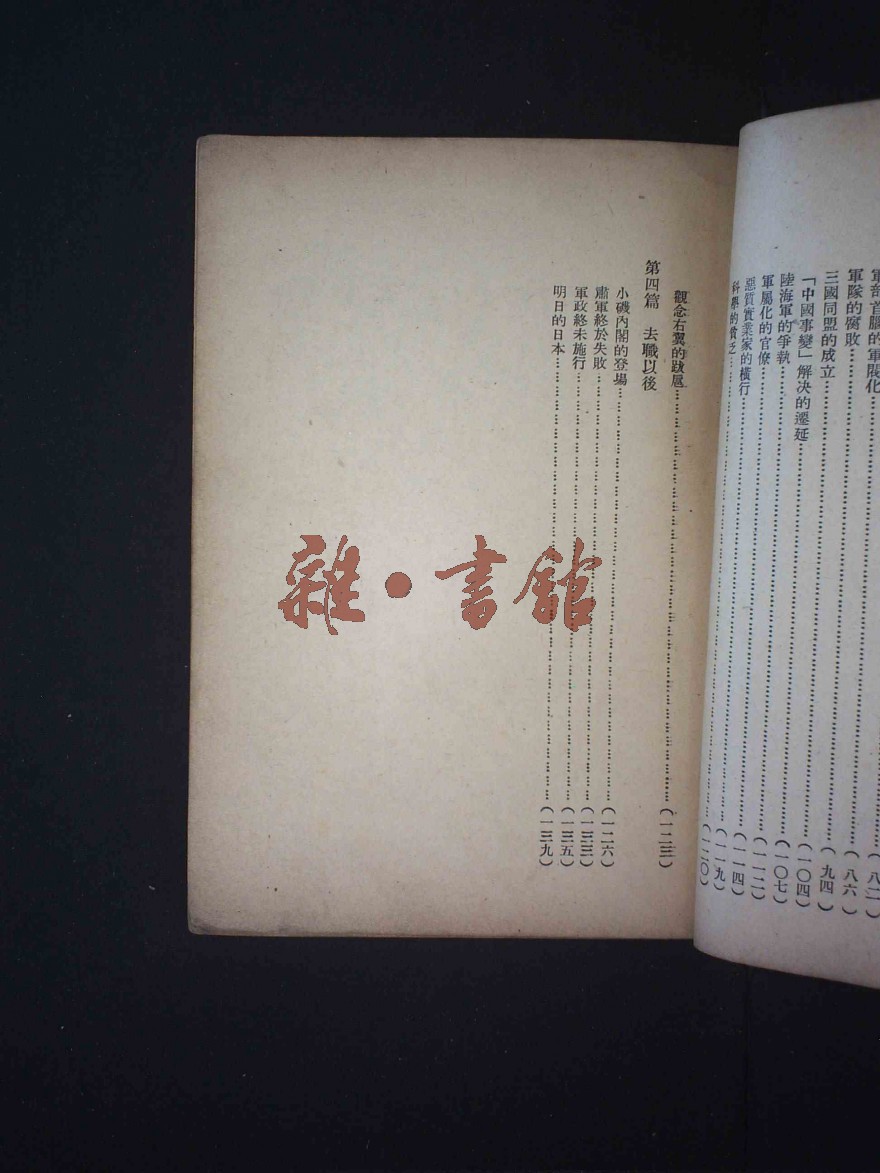 軍部首腦的軍閥化……(八二)
軍隊的腐敗……(八六)
三國同盟的成立……(九四)
「中國事變」解決的遷延……(一〇四)
陸海軍的爭執……(一〇七)
軍屬化的官僚……(一一二)
惡質實業家的橫行……(一一四)
科學的貧乏……(一一九)
(一二〇)
觀念右翼的跋扈……(一二三)
第四篇 去職以後
小磯內閣的登場……(一二六)
肅軍終於失敗……(一三三)
軍政終未施行……(一三五)
明日的日本……(一三九)
雜·書館